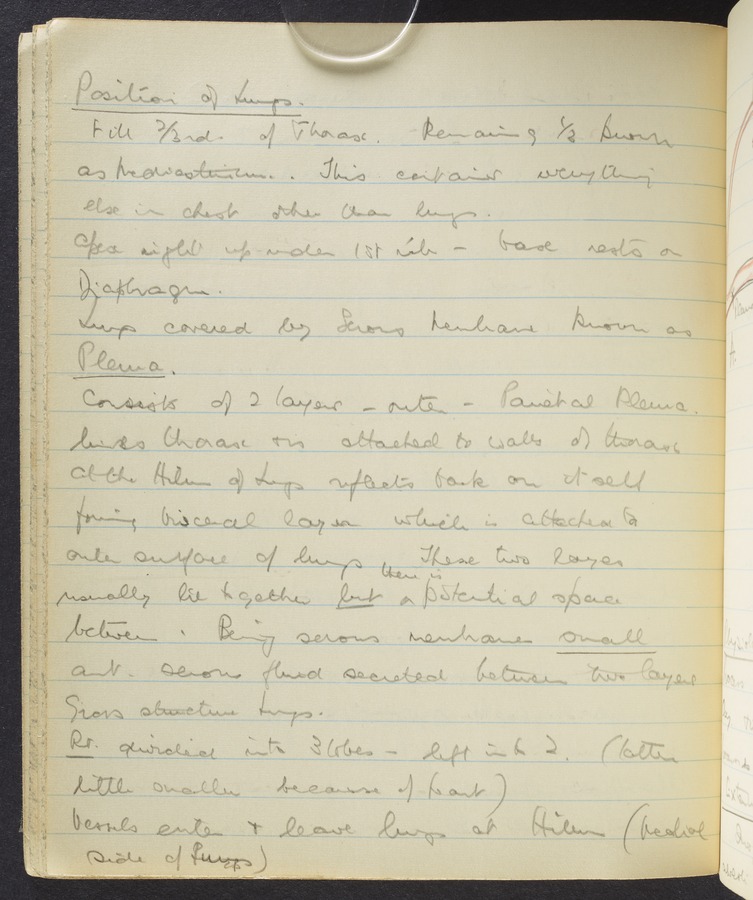 Position of Lungs.
Fill 2/3rds of Thorax. Remaining 1/3 known
as Mediastinum. This contains everything
else in chest other than lungs.
Apex right up under 1st rib - base rests on
Diaphragm.
Lungs covered by Serous Membrane known as
Pleura.
Consists of 2 layers - outer - Parietal Pleura.
lines thorax & is attached to walls of thorax
at the Hilum of Lungs reflects back on itself
forming visceral layer which is attached to
outer surface of lungs These two layers
usually lie together but there is a potential space
between. Being serous membranes small
amt. serous fluid secreted between two layers
Gross structure Lungs.
Rt. divided into 3 lobes - left into 2. (latter
little smaller because of heart)
Vessels enter & leave lungs at Hilum (medial
side of Lungs)